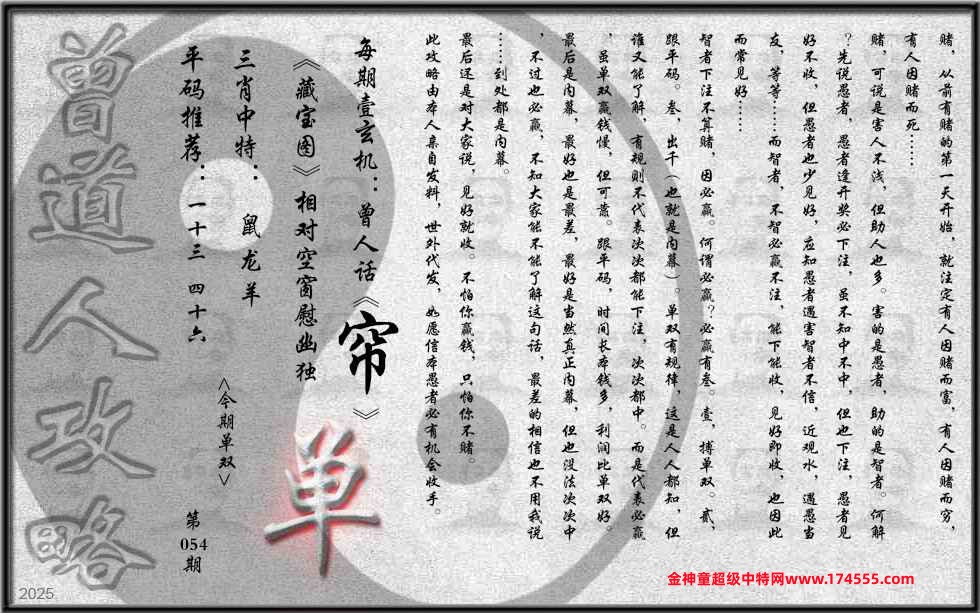 赌，从前有赌的第一天开始，就注定有人因赌而富，有人因赌而穷，
有人因赌而死……
赌，可说是害人不浅，但助人也多。害的是愚者，助的是智者。何解
？先说愚者，愚者逢开奖必下注，虽不知中不中，但也下注，愚者见
好不收，但愚者也少见好，应知愚者遇害智者不信，近观水，遇愚当
友，等等……而智者，不智必赢不注，能下能收，见好即收，也因此
而常见好……
智者下注不算赌，因必赢。何谓必赢？必赢有叁。壹，搏单双。贰，
跟平码。叁，出千（也就是内幕）。单双有规律，这是人人都知，但
谁又能了解，有规则不代表次次都能下注，次次都中。而是代表必赢
，虽单双赢钱慢，但可靠。跟平码，时间长本钱多，利润比单双好。
最后是内幕，最好也是最差，最好是当然真正内幕，但也没法次次中
，不过也必赢，不知大家能不能了解这句话，最差的相信也不用我说
……到处都是内幕。
最后还是对大家说，见好就收。不怕你赢钱，只怕你不赌。
此攻略由本人亲自发料，世外代发，如愿信本愚者必有机会收手。
每期壹玄机：曾人话《帘》
《藏宝图》相对空窗慰幽独
三肖中特：鼠龙羊
<今期单双>
单
平码推荐：一十三 四十六
第054期
曾道人攻略
2025
金神童超级中特网www.174555.com